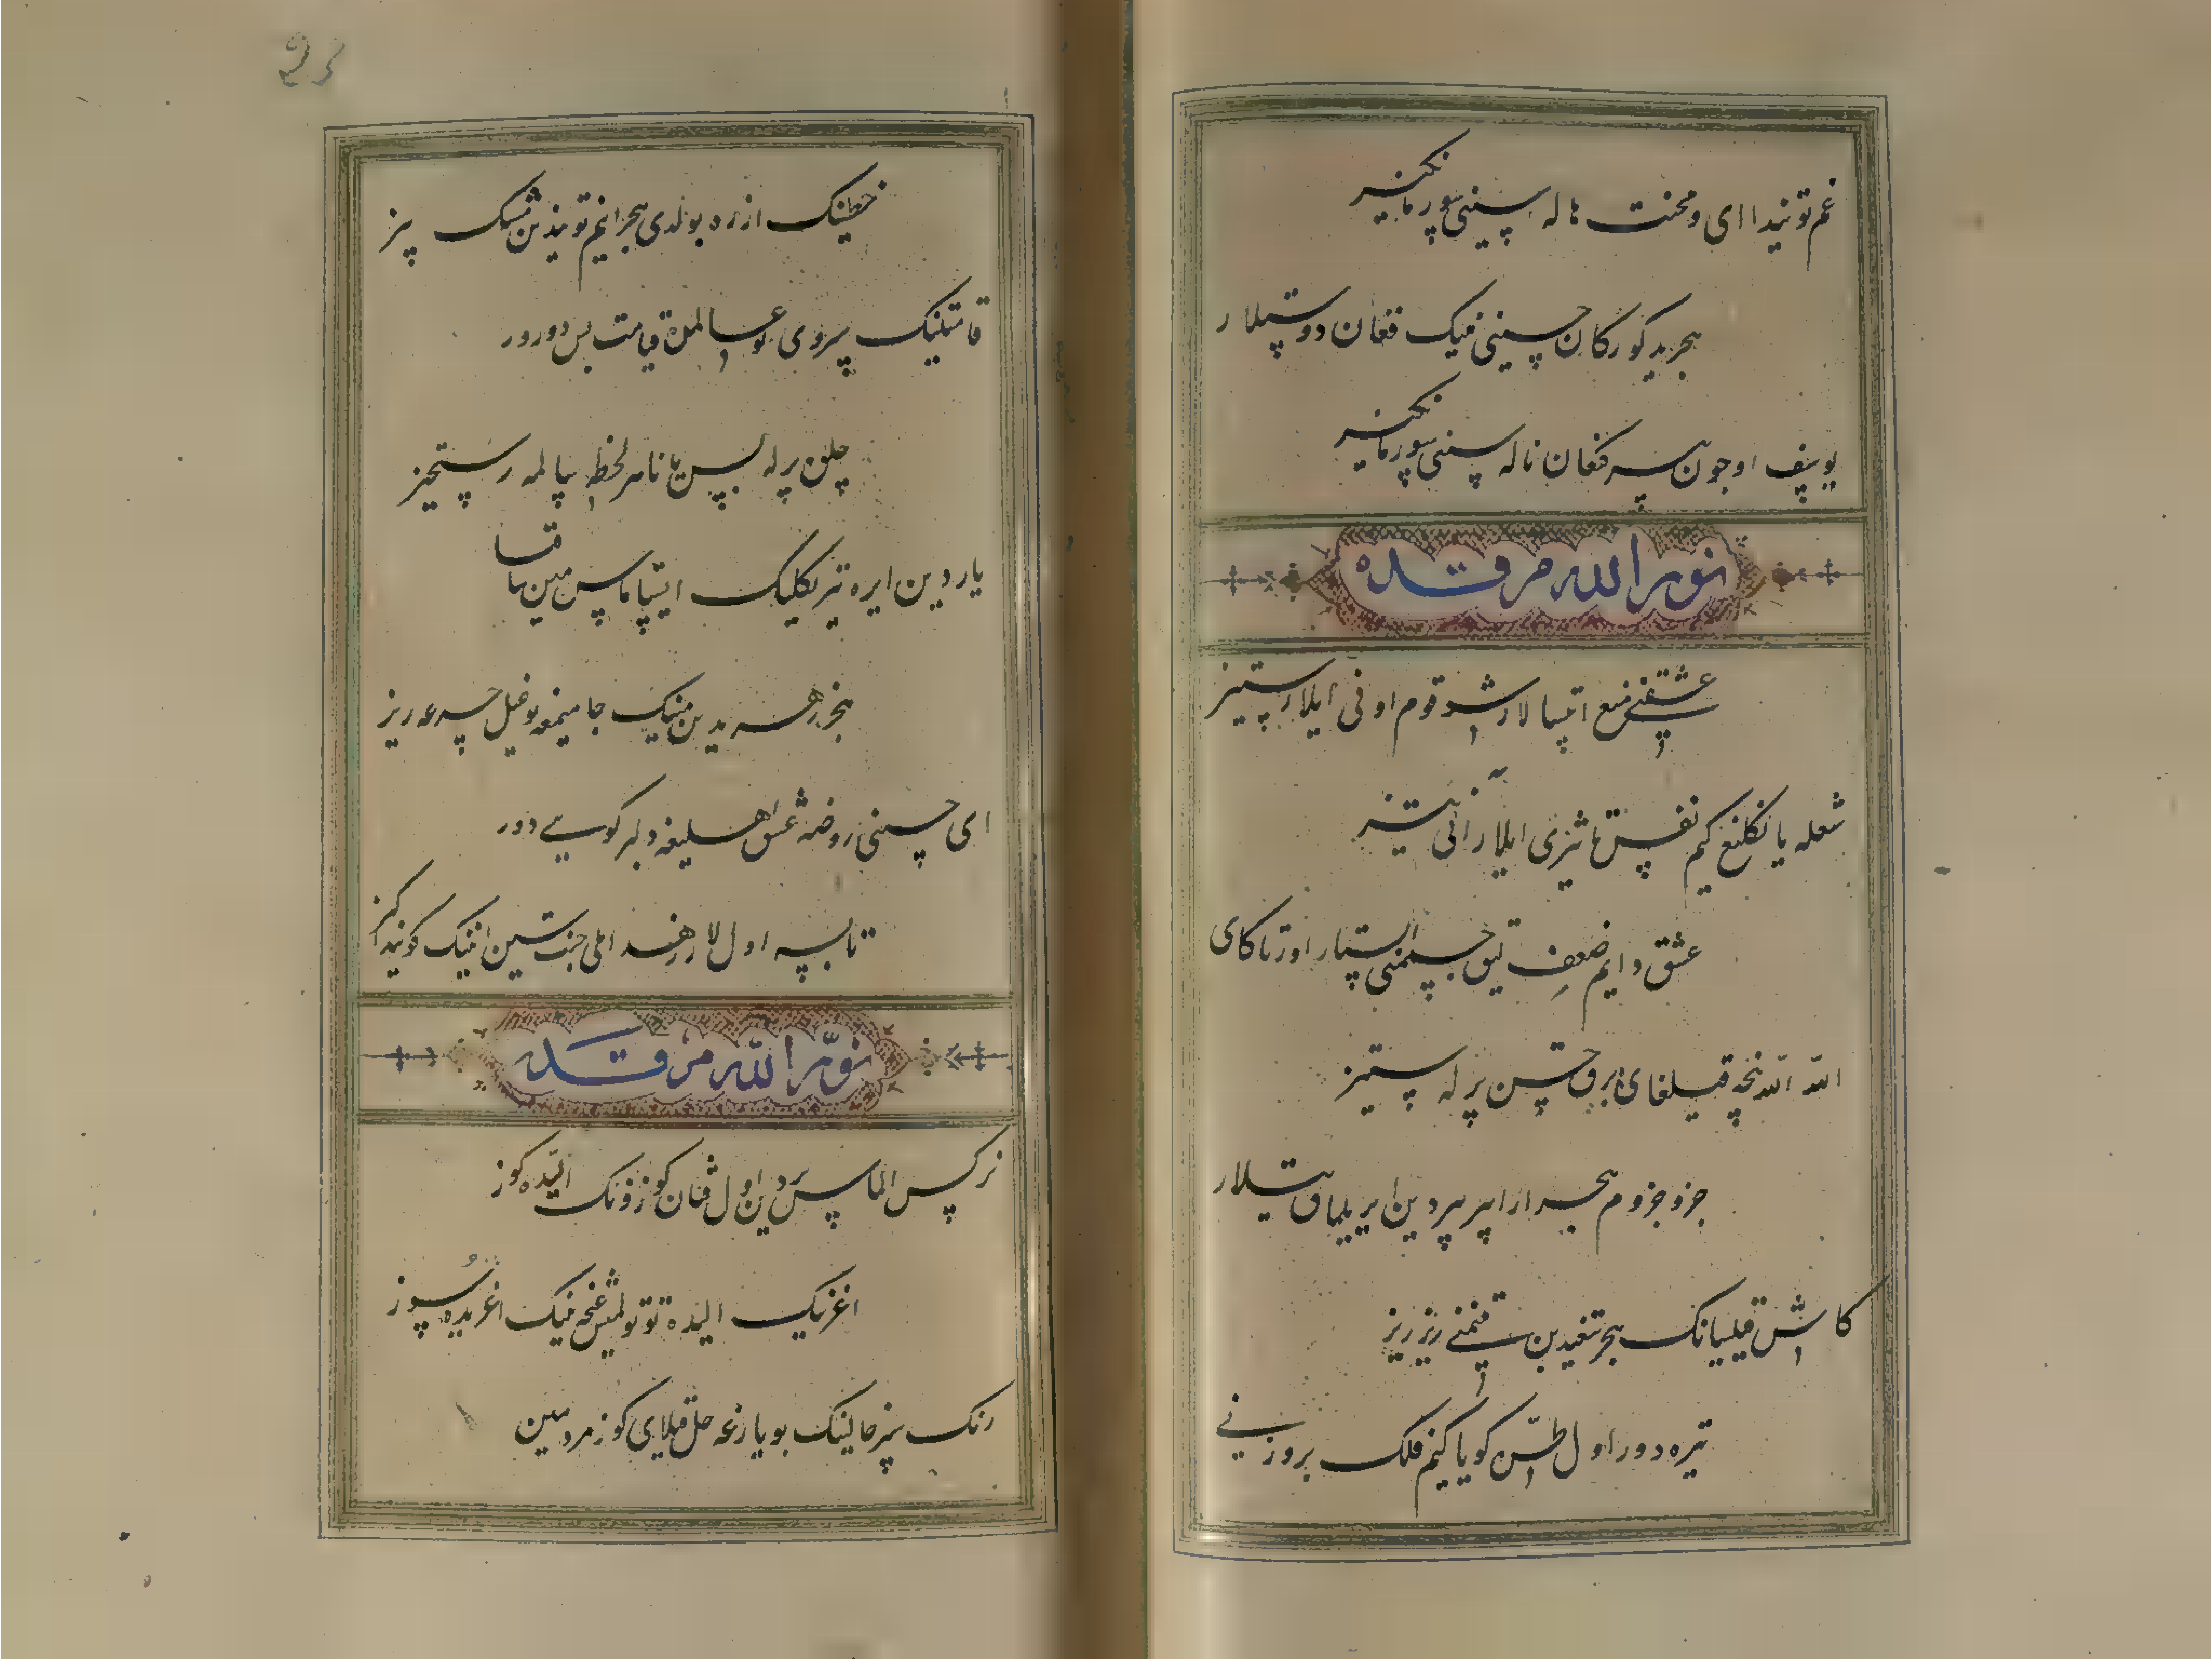 غم تونیدا ای و محنت هاله سینی سورمانکیز
هجریدکورکان حسینی نیک فغان دوستلار
یوسف اوچون پیر کنعان ناله سینی سورمانکیز
نور الله مرقده
عشقنی منع ایتسالار شوقوم اونی ایلار ستیز
شعله یانکلیغ کیم نفس تاثیری ایلار آنی تیز
عشق دایم ضعف تیق جسمنی ایستار اورتاکای
الله الله نیچه قیلغای برق خس بیرله ستیز
جزو جزوم هجر ارا بیر بیردین ایریلماق تیلار
کاش قیلسانک هجر تیغیدین تنیمنی ریز ریز
تیره دور اول خطتین کویا کیم فلک بو روزنی
23
خطینک ازره بولدی هجرانیم تونیدین مشک بیز
قامتینک سروی بو عالمدا قیامت بس دورور
جلوه بیرله بسین یانا هر لحظه سالمه رستخیز
یار دین ایره تیریکلیک ایستاماسمین ساقیا
هجر زهریدین مینک جامیمغه بوغیل جرعه ریز
ای حسینی روضه عشق اهلیغه دلبر کویی دور
تابسه اول لار زهد اهلی جنت سین انینک کوینداکیز
نور الله مرقده
نرکس الماس بیردین اول فتان کوزونک الیده کوز
اغزینک الیده توتولمیش غنچه نینک اغزیده سوز
رنک بیز خالینک بویارغه حل قیلای کوز مردمین